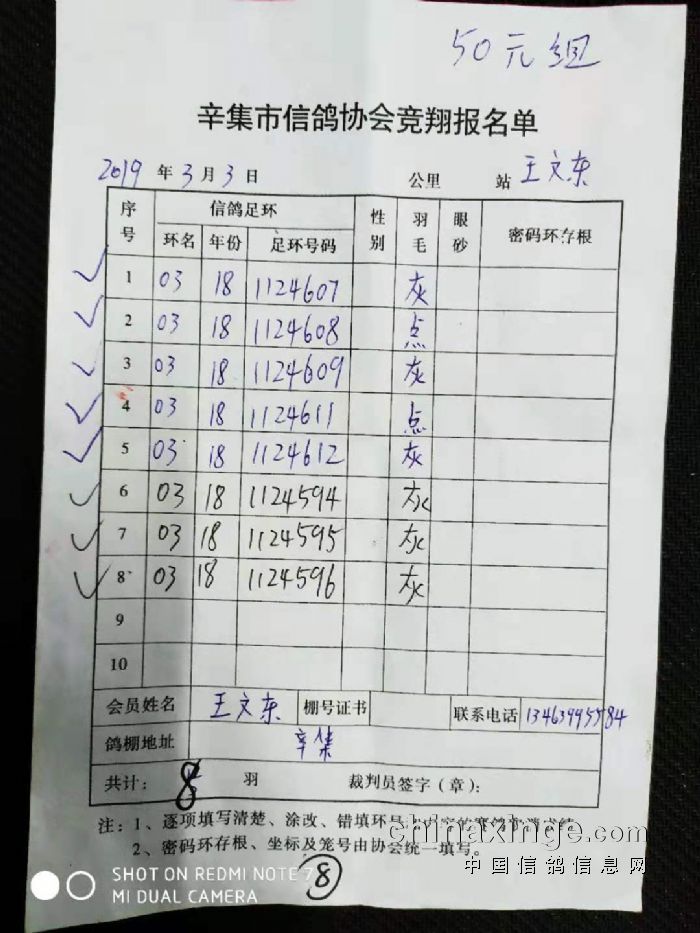 50元组
辛集市信鸽协会竞翔报名单
2019 年 3 月 3 日 公里 站 王文东
序号 信鸽足环 性别 羽毛 眼砂 密码环存根
环名 年份 足环号码
1 03 18 1124607 灰
2 03 18 1124608 点
3 03 18 1124609 灰
4 03 18 1124611 点
5 03 18 1124612 灰
6 03 18 1124594 灰
7 03 18 1124595 灰
8 03 18 1124596 灰
9
10
会员姓名 王文东 棚号证书 联系电话 13463995584
鸽棚地址 辛集
共计: 8 羽 裁判员签字(章):
注: 1、逐项填写清楚、涂改、错填环号
2、密码环存根、坐标及笼号由协会统一填写。
8
chinaxinge.com
中国信鸽信息网
SHOT ON REDMI NOTE 7
MI DUAL CAMERA